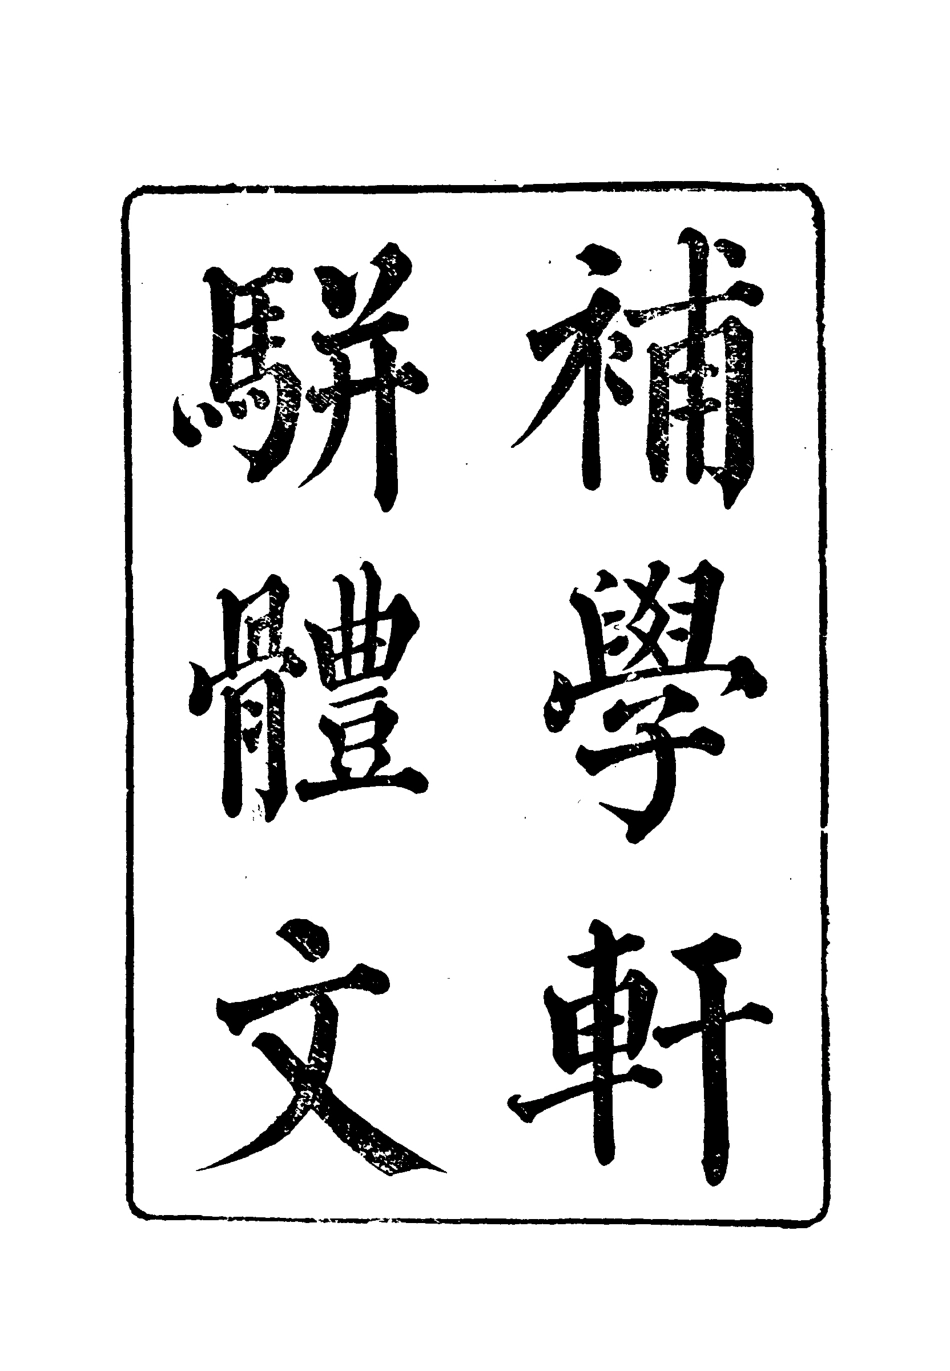 補學軒
駢體文